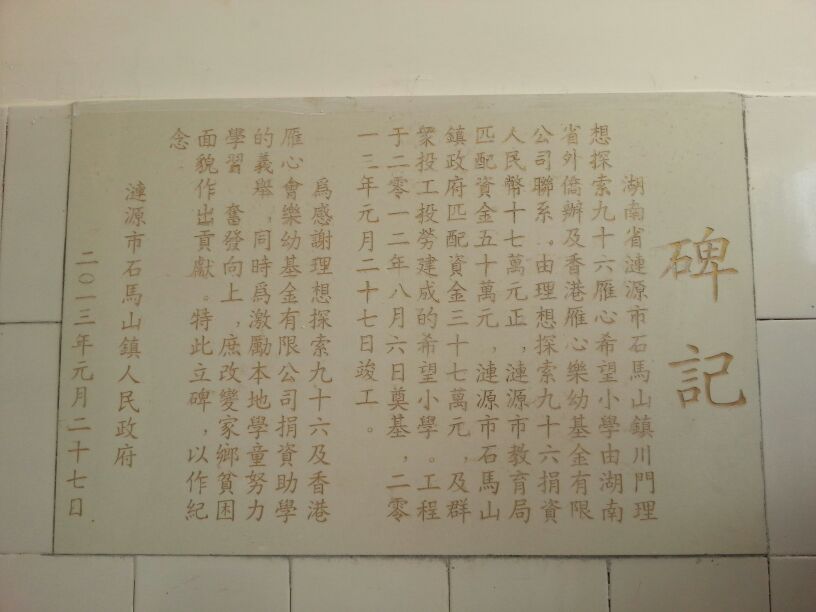 碑記
湖南省漣源市石馬山鎮川門理
想探索九十六雁心希望小學由湖南
省外僑辦及香港雁心樂幼基金有限
公司聯系。由理想探索九十六捐資
人民幣十七萬元正，漣源市教育局
匹配資金五十萬元，漣源市石馬山
鎮政府匹配資金三十七萬元，及群
衆投工投勞建成的希望小學。工程
于二零一二年八月六日奠基，二零
一三年元月二十七日竣工。
爲感謝理想探索九十六及香港
雁心會樂幼基金有限公司捐資助學
的義舉，同時爲激勵本地學童努力
學習，奮發向上，庶改變家鄉貧困
面貌作出貢獻。特此立碑，以作紀
念。
漣源市石馬山鎮人民政府
二〇一三年元月二十七日